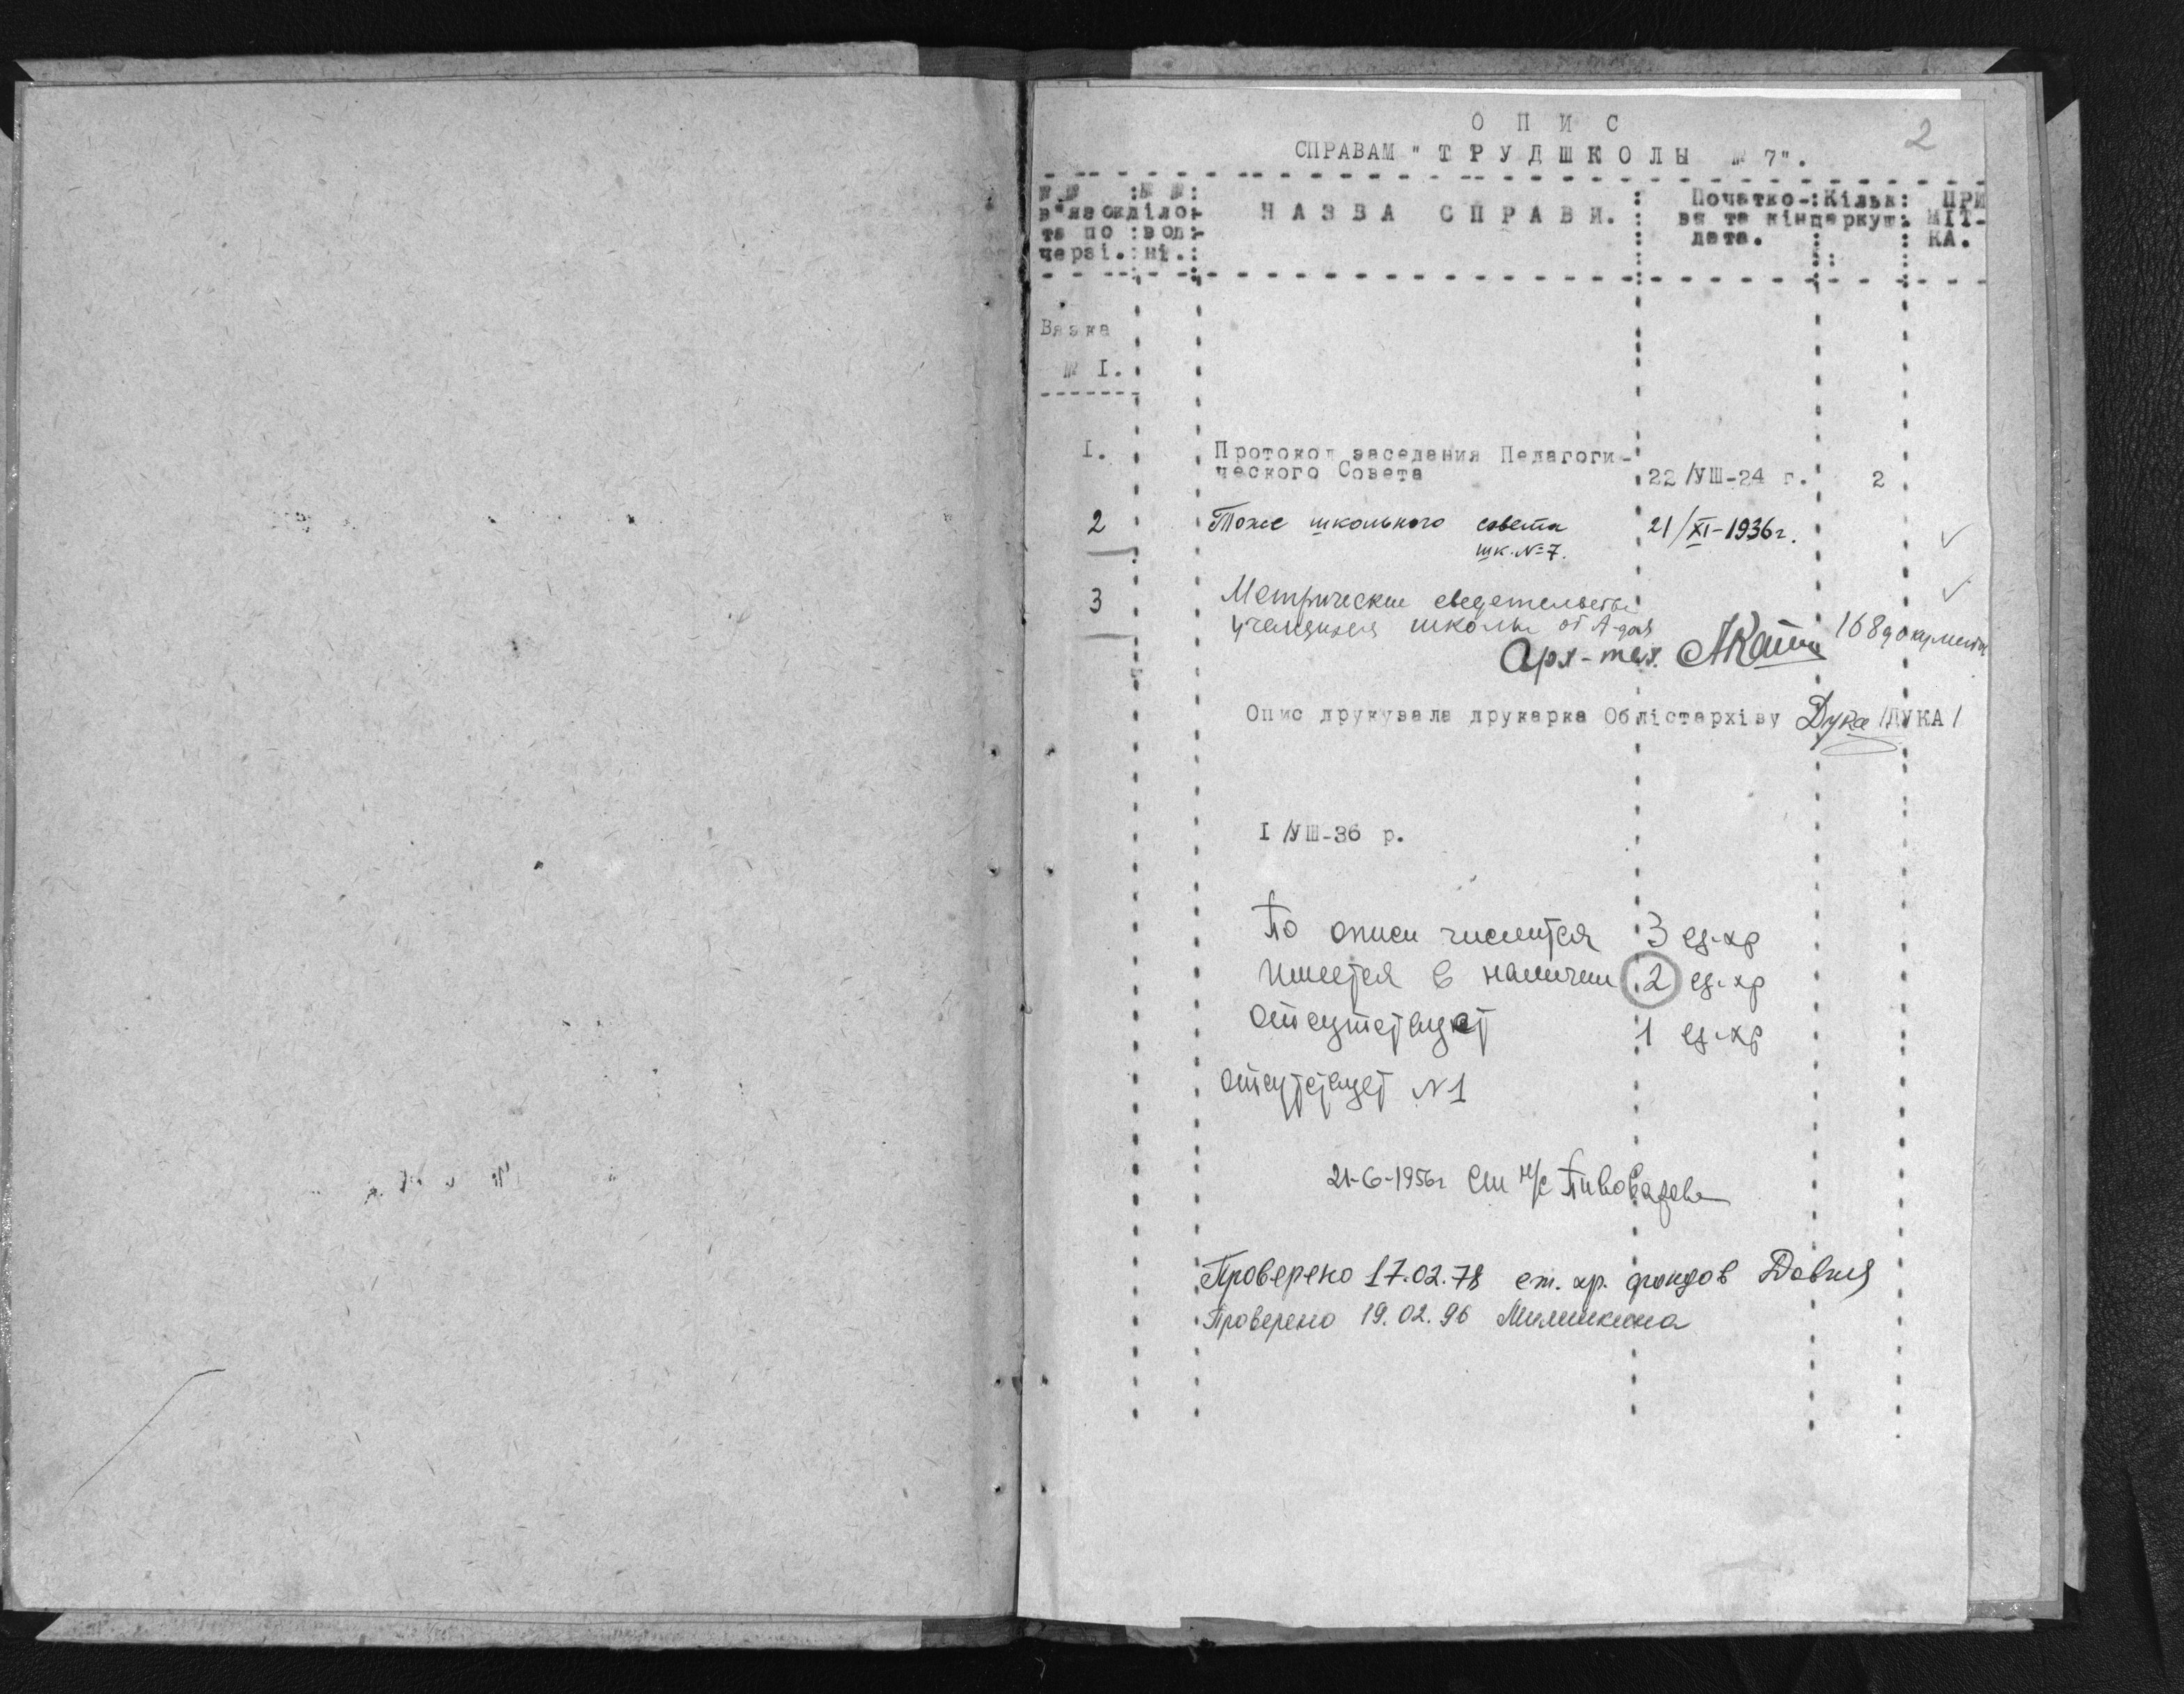 2
О П И С
СПРАВАМ "ТРУДШКОЛЫ № 7".
№ № в"язок та по черзі. : № № діло- вод- ні. : НАЗВА СПРАВИ. : Початко- ва та кінц дата. : Кільк аркуш. : ПРИ МІТ- КА.
Вязка
№ I.
I. Протокол заседания Педагоги-
ческого Совета 22/УШ-24 г. 2
2 Тоже школьного совета 21/XI-1936г. ✓
шк. №7.
3 Метрические сведетельства ✓
учащихся школы от А-до Я 168 документа
Арх-тех.
Опис друкувала друкарка Облістархіву Дука /ДУКА/
I/УШ-36 р.
По описи числится 3 ед-хр
Имеется в наличии 2 ед-хр
отсутствует 1 ед-хр
отсутствует N1
21-6-1956г Ст н/с Пивоварова
Проверено 17.02.78 ст. хр. фондов
Проверено 19.02.96